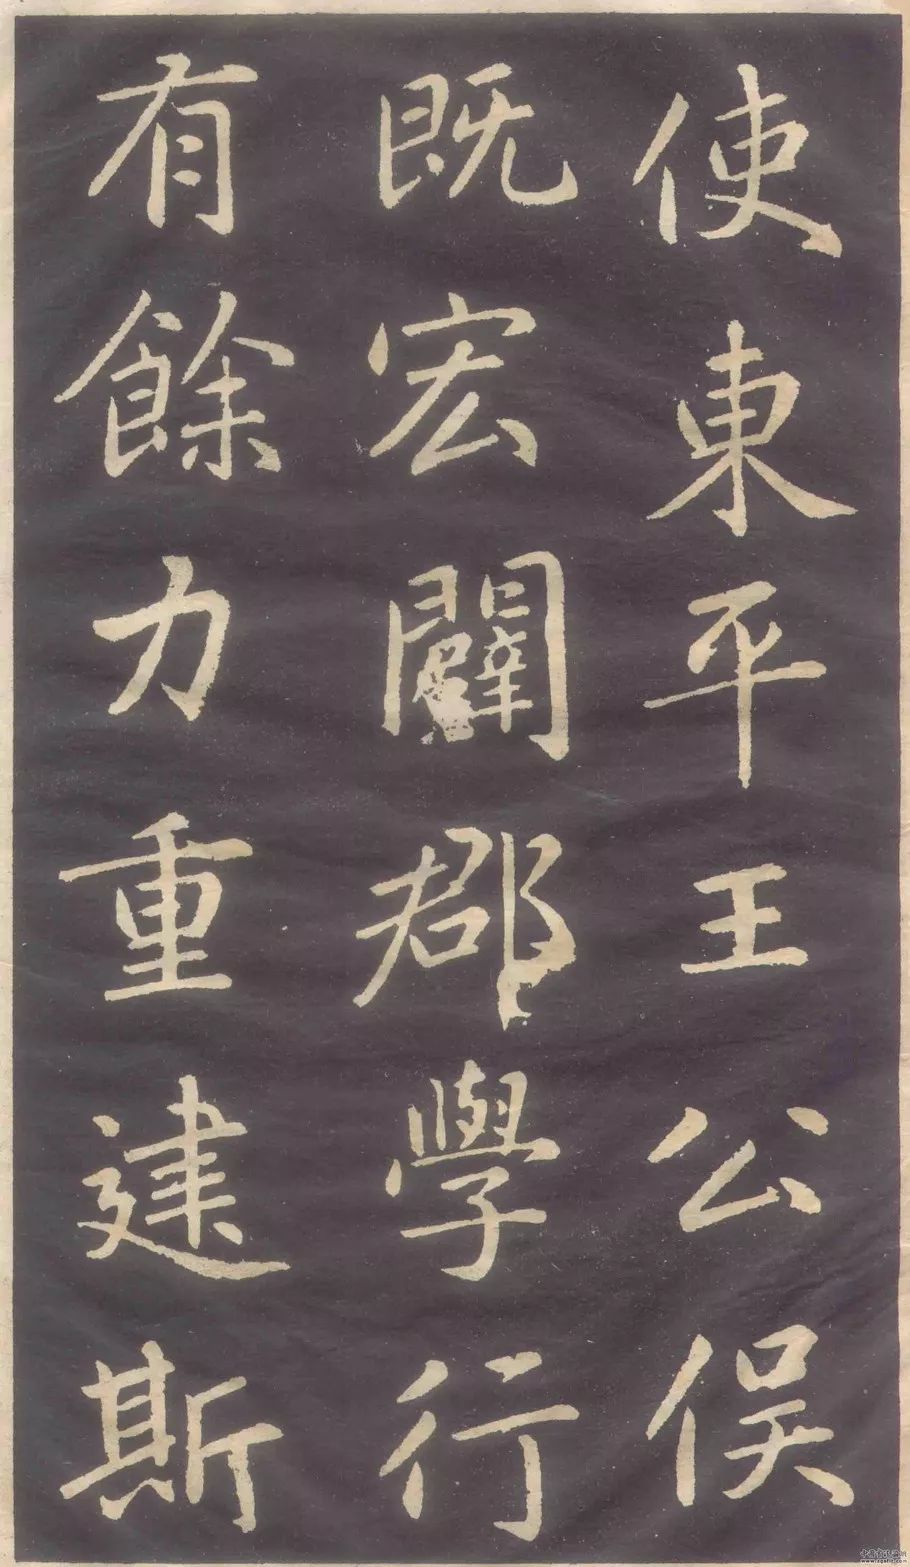 使東平王公俣
既宏闡郡學行
有餘力重建斯